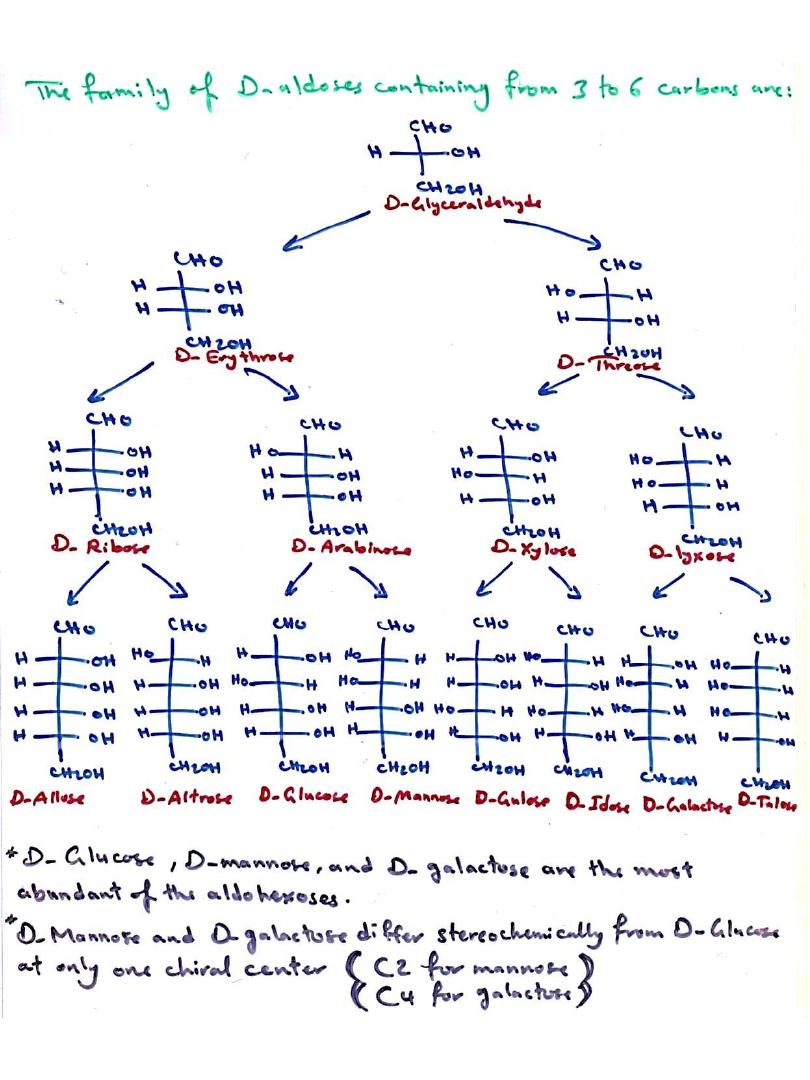 The family of D-aldoses containing from 3 to 6 carbons are:
CHO
H OH
CH2OH
D-Glyceraldehyde
CHO CHO
H OH HO H
H OH H OH
CH2OH CH2OH
D-Erythrose D-Threose
CHO CHO CHO CHO
H OH HO H H OH HO H
H OH H OH HO H HO H
H OH H OH H OH H OH
CH2OH CH2OH CH2OH CH2OH
D-Ribose D-Arabinose D-Xylose D-lyxose
CHO CHO CHO CHO CHO CHO CHO CHO
H OH HO H H OH HO H H OH HO H H OH HO H
H OH H OH HO H HO H H OH H OH HO H HO H
H OH H OH H OH H OH HO H HO H HO H HO H
H OH H OH H OH H OH H OH H OH H OH H OH
CH2OH CH2OH CH2OH CH2OH CH2OH CH2OH CH2OH CH2OH
D-Allose D-Altrose D-Glucose D-Mannose D-Gulose D-Idose D-Galactose D-Talose
*D-Glucose, D-mannose, and D-galactose are the most
abundant of the aldohexoses.
*D-Mannose and D-galactose differ stereochemically from D-Glucose
at only one chiral center (C2 for mannose)
(C4 for galactose)